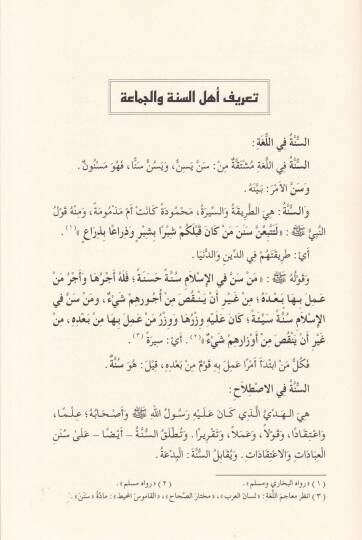 تعريف أهل السنة والجماعة
السُّنَّةُ فِي اللُّغَةِ:
السُّنَّةُ فِي اللُّغَةِ مُشْتَقَّةٌ مِنْ: سَنَّ يَسِنُّ، وَيَسُنُّ سَنًّا، فَهُوَ مَسْنُونٌ.
وَسَنَّ الأَمْرَ: بَيَّنَهُ.
وَالسُّنَّةُ: هِيَ الطَّرِيقَةُ وَالسِّيرَةُ، مَحْمُودَةً كَانَتْ أَمْ مَذْمُومَةً، وَمِنْهُ قَوْلُ
النَّبِيِّ ﷺ: «لَتَتَّبِعُنَّ سَنَنَ مَنْ كَانَ قَبْلَكُمْ شِبْرًا بِشِبْرٍ وَذِرَاعًا بِذِرَاعٍ»(١).
أَيْ: طَرِيقَتَهُمْ فِي الدِّينِ وَالدُّنْيَا.
وَقَوْلُهُ ﷺ: «مَنْ سَنَّ فِي الإِسْلَامِ سُنَّةً حَسَنَةً؛ فَلَهُ أَجْرُهَا وَأَجْرُ مَنْ
عَمِلَ بِهَا بَعْدَهُ؛ مِنْ غَيْرِ أَنْ يَنْقُصَ مِنْ أُجُورِهِمْ شَيْءٌ، وَمَنْ سَنَّ فِي
الإِسْلَامِ سُنَّةً سَيِّئَةً؛ كَانَ عَلَيْهِ وِزْرُهَا وَوِزْرُ مَنْ عَمِلَ بِهَا مِنْ بَعْدِهِ، مِنْ
غَيْرِ أَنْ يَنْقُصَ مِنْ أَوْزَارِهِمْ شَيْءٌ»(٢). أَيْ: سِيرَةً(٣).
فَكُلُّ مَنْ ابْتَدَأَ أَمْرًا عَمِلَ بِهِ قَوْمٌ مِنْ بَعْدِهِ، قِيلَ: هُوَ سُنَّةٌ.
السُّنَّةُ فِي الاصْطِلَاحِ:
هِيَ الهَدْيُ الَّذِي كَانَ عَلَيْهِ رَسُولُ اللهِ ﷺ وَأَصْحَابُهُ؛ عِلْمًا،
وَاعْتِقَادًا، وَقَوْلًا، وَعَمَلًا، وَتَقْرِيرًا. وَتُطْلَقُ السُّنَّةُ – أَيْضًا – عَلَى سُنَنِ
العِبَادَاتِ وَالاعْتِقَادَاتِ. وَيُقَابِلُ السُّنَّةَ: البِدْعَةُ.
(١) «رواه البخاري ومسلم». (٢) «رواه مسلم».
(٣) انظر معاجم اللغة: «لسان العرب»، «مختار الصحاح»، «القاموس المحيط»: مادَّة «سَنَنَ».